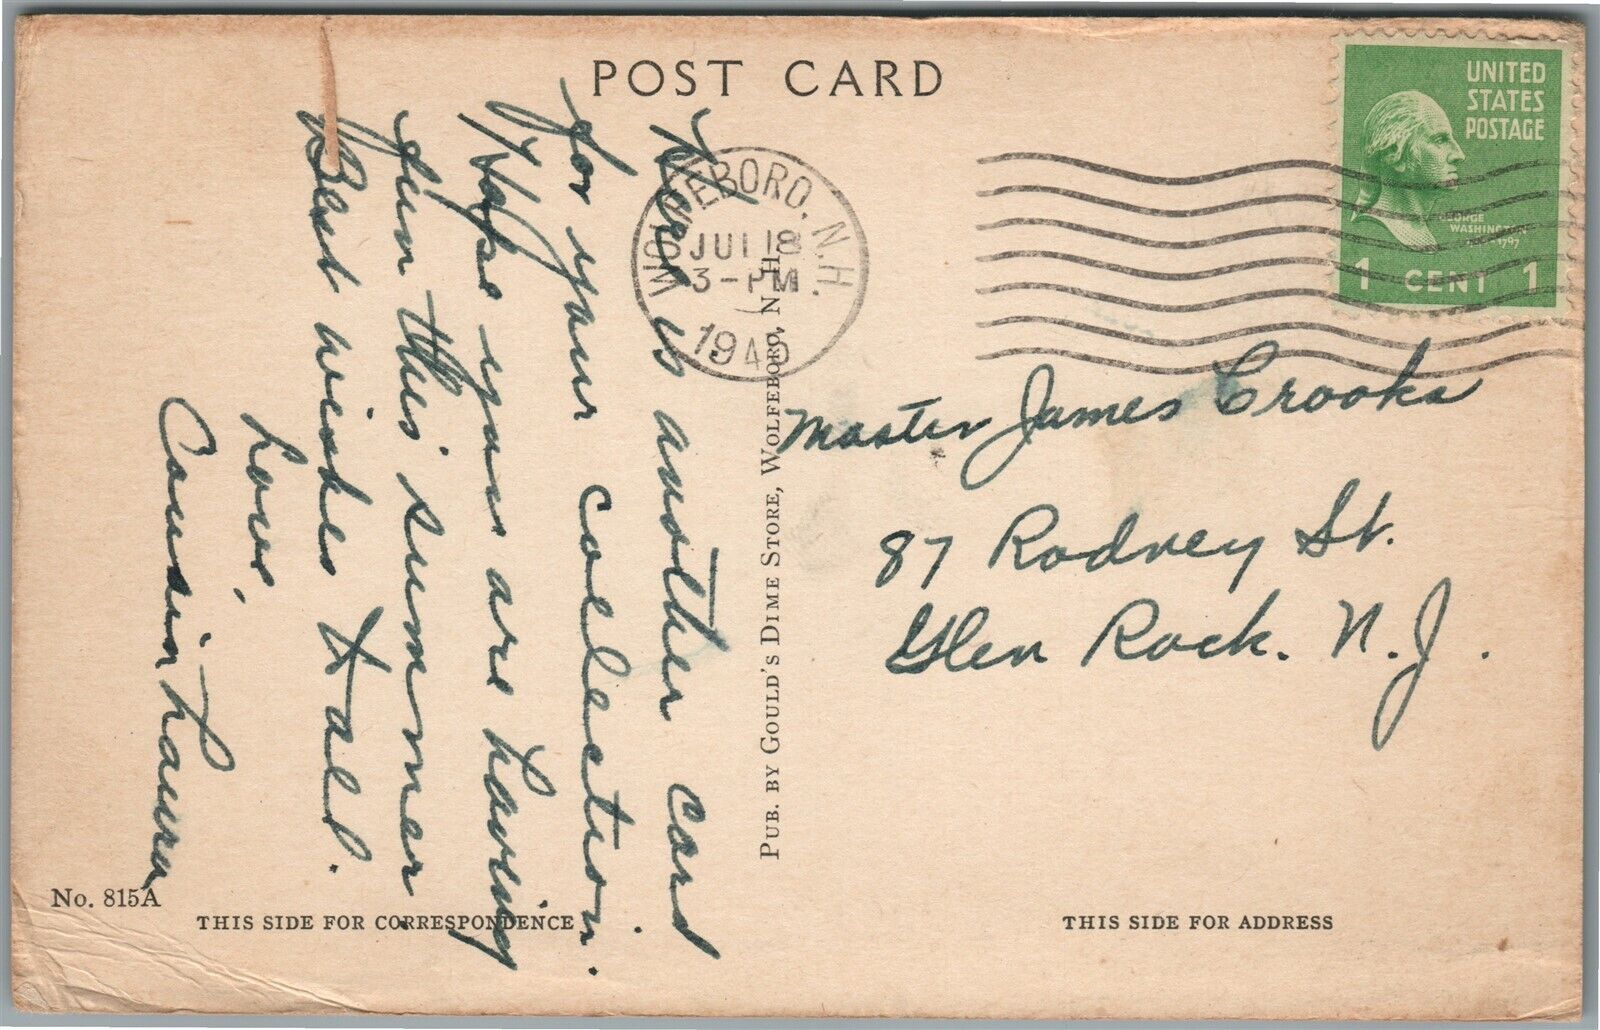 POST CARD
UNITED
STATES
POSTAGE
GEORGE
WASHINGTON
1797
1 CENT 1
WOLFEBORO, N.H.
JUL 18
3-PM
1940
Here is another card
for your collection.
Hope you are having
fun this summer
Best wishes to all.
Love,
Cousin Laura
PUB. BY GOULD'S DIME STORE, WOLFEBORO, N. H.
Master James Crooks
87 Rodney St.
Glen Rock. N.J.
No. 815A
THIS SIDE FOR CORRESPONDENCE
THIS SIDE FOR ADDRESS